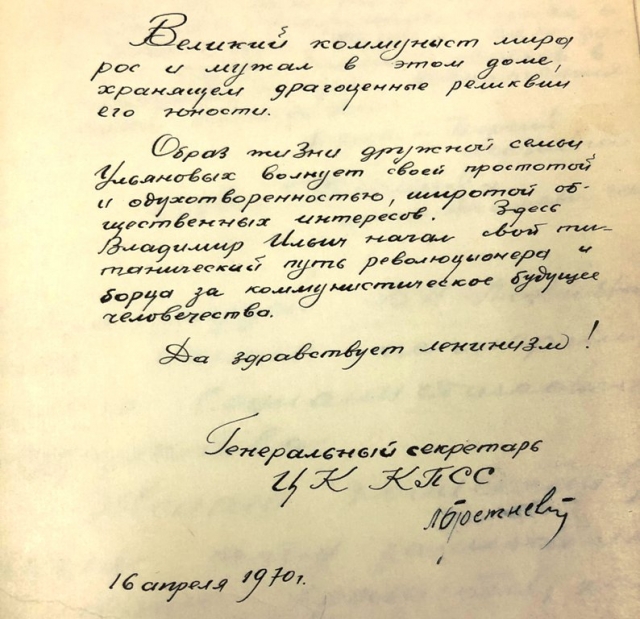 Великий коммунист мира
рос и мужал в этом доме,
хранящем драгоценные реликвии
его юности.
Образ жизни дружной семьи
Ульяновых волнует своей простотой
и одухотворенностью, широтой об-
щественных интересов. Здесь
Владимир Ильич начал свой ти-
танический путь революционера и
борца за коммунистическое будущее
человечества.
Да здравствует ленинизм!
Генеральный секретарь
ЦК КПСС
Л Брежнев
16 апреля 1970г.